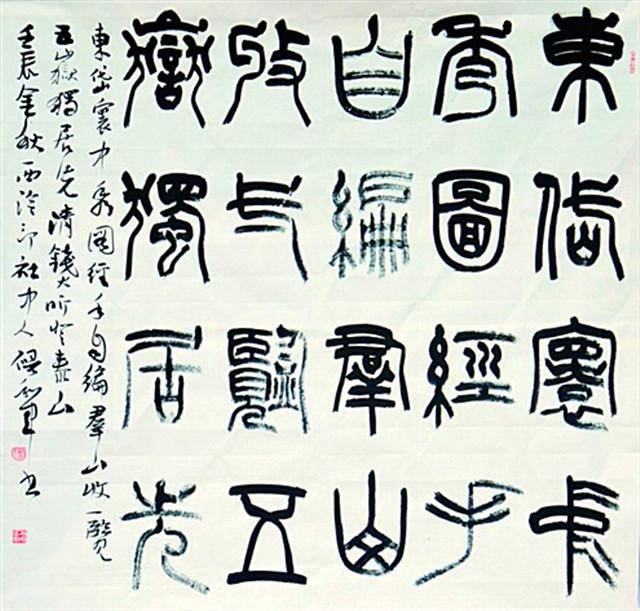 東岱寰中
秀圖經手
自編羣山
收一覽五
嶽獨居先
東岱寰中秀圖經手自編羣山收一覽
五嶽獨居先清錢大昕登泰山
壬辰金秋西泠印社中人書